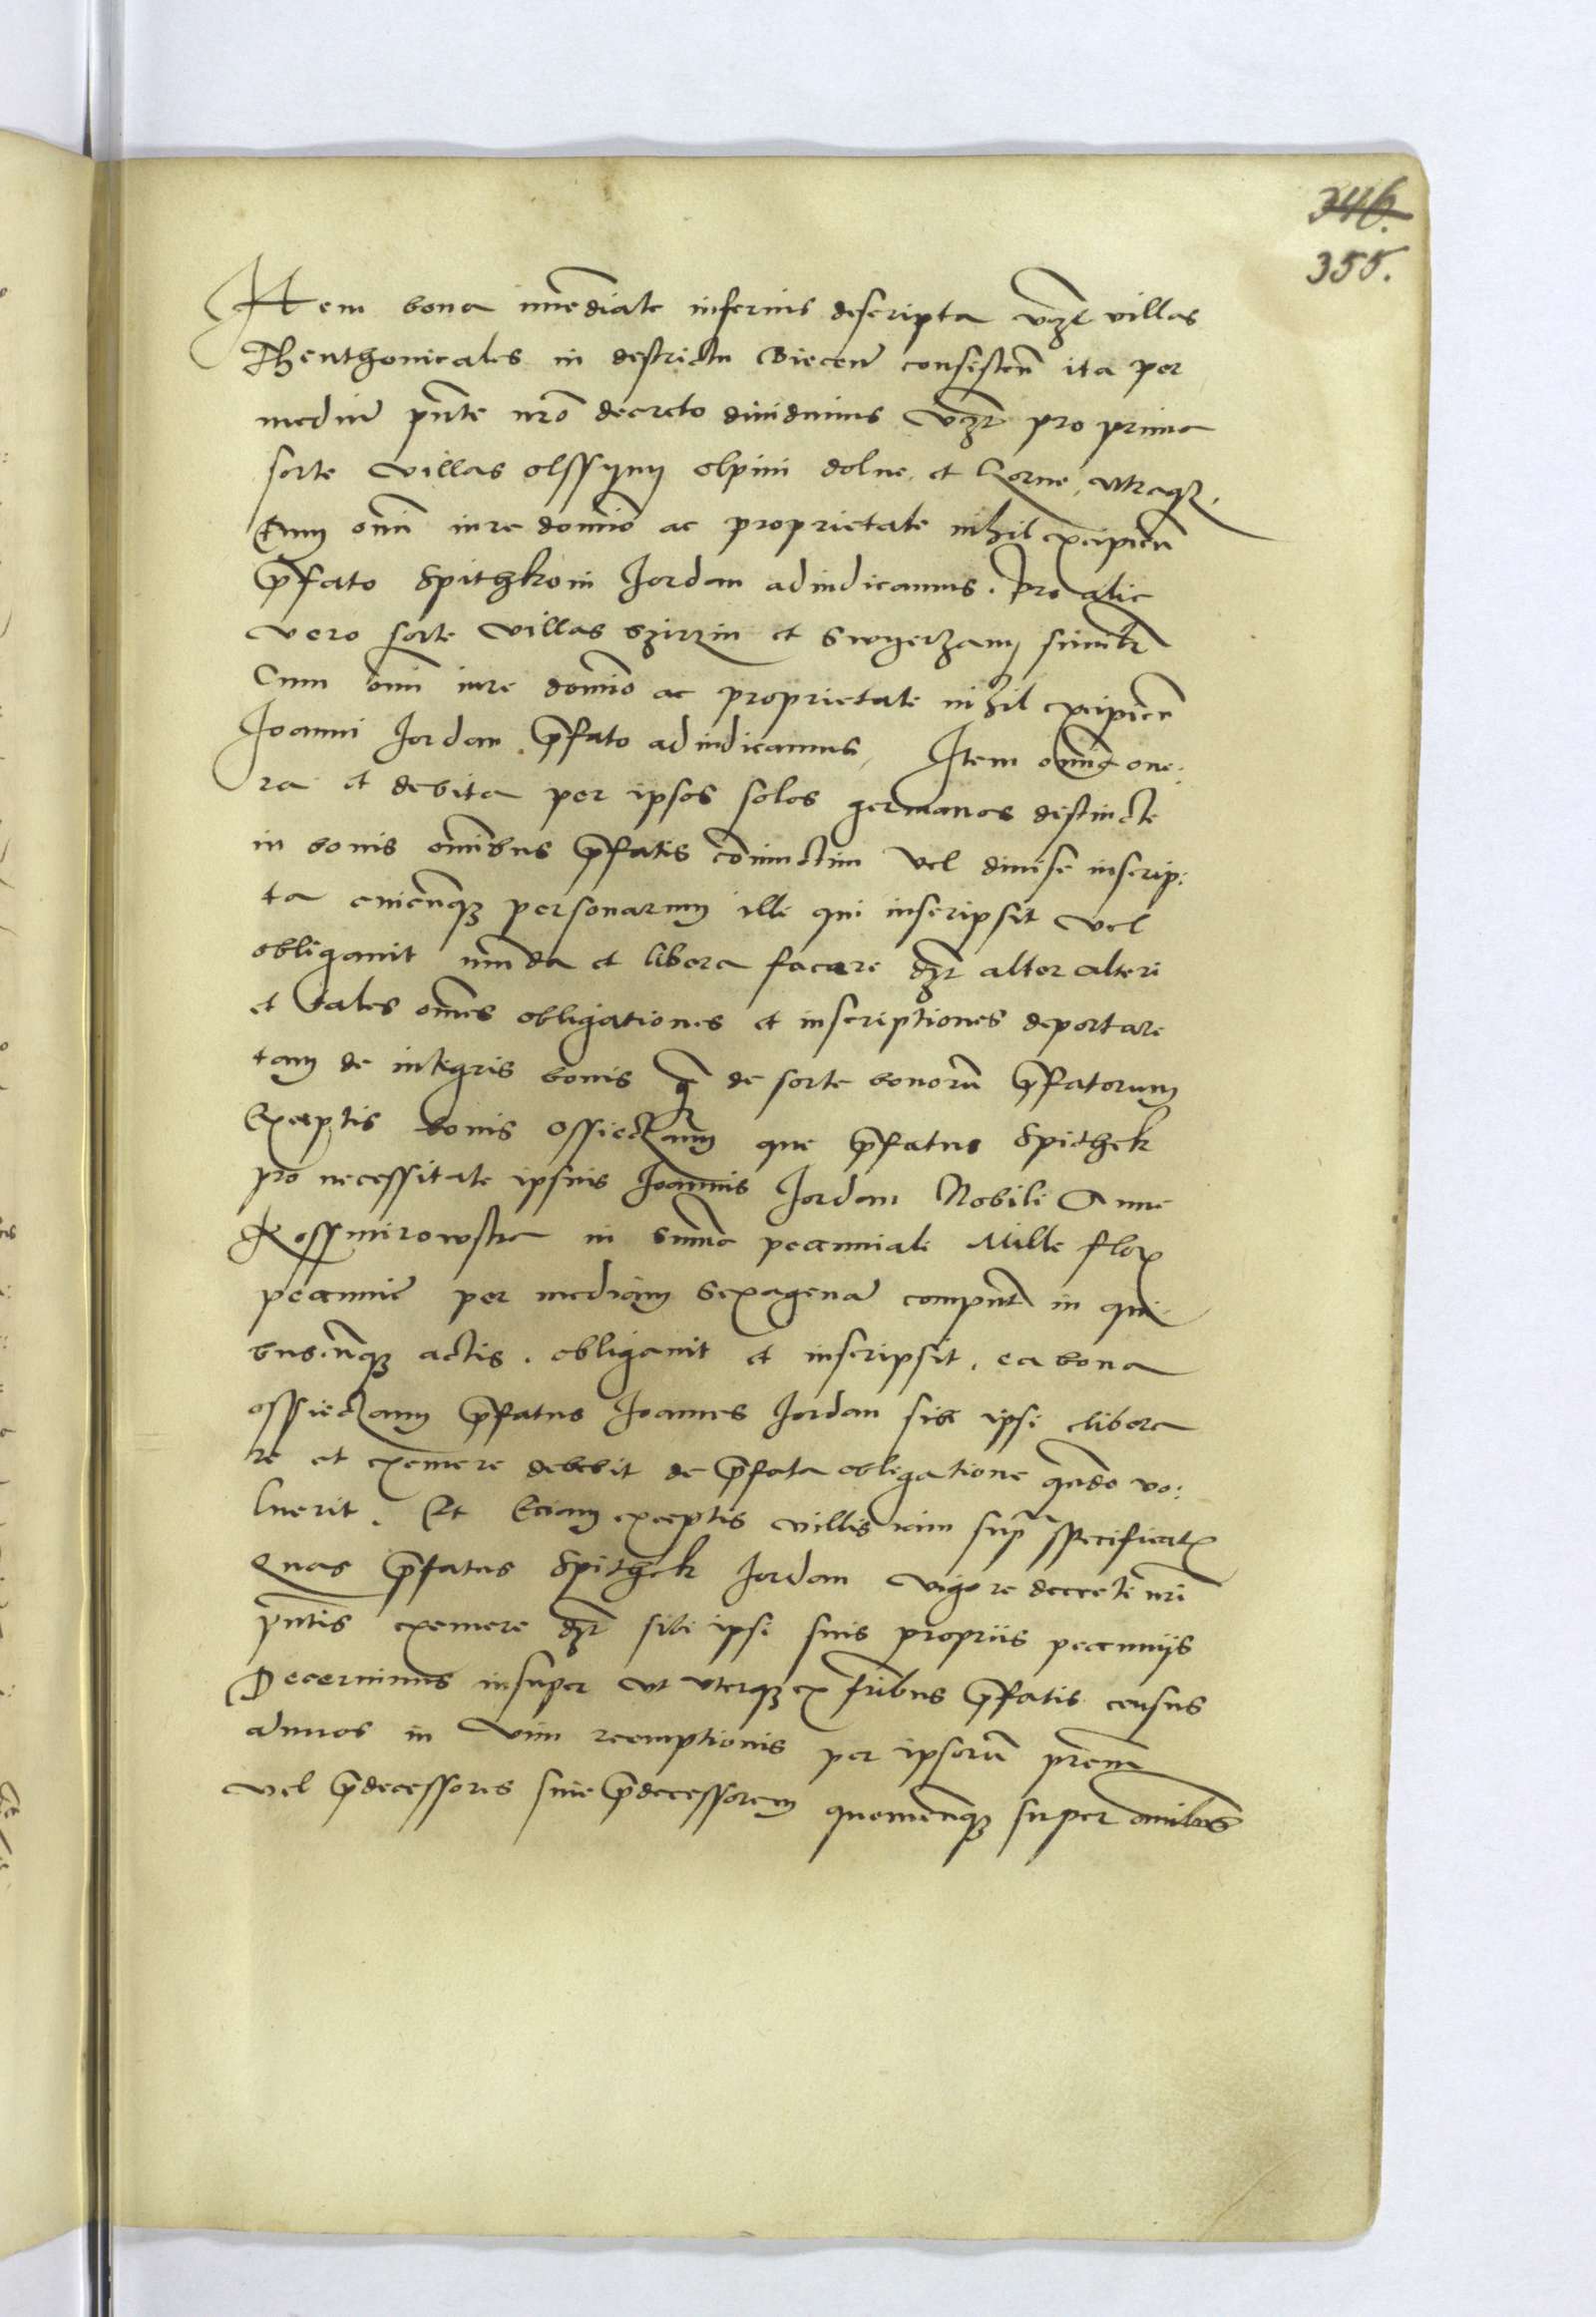 346.
355.
Item bona imediate inferius descripta vczt villas
Theuthonicales in destrictu Biecen̄ consisten̄ ita per
mediu̅ pn̄te nr̄o decreto dividimus vczt pro prima
sorte villas olssyny olpini dolne et Gorne utraq₃
Cum om̄i iure domīo ac proprietate nihil excipien̄
p̄fato Spithkoni Jordan adiudicamus. Pro alia
vero sorte villas szirzin et Swyerzany simītr
Cum om̄i iure domīo ac proprietate nihil excipien̄
Joanni Jordan p̄fato adiudicamus, Item om̄ia one:
ra et debita per ipsos solos germanos destincte
in bonis om̄ibus p̄fatis coniunctim vel divise inscrip:
ta cuicun̄q₃ personarum ille qui inscripsit vel
obligavit munda et libera facere dz̄t alter alteri
et tales om̄es obligationes et inscriptiones deportare
tam de integris bonis q̄ de sorte bonoru̅ p̄fatorum
Exceptis bonis Ossieczany que p̄fatus Spithek
pro necessitate ipsius Joannis Jordan Nobili Anne
Rossmirowska in summa pecuniali Mille flor
pecunie per mediam Sexagena̅ computn̄ in qui
buscun̄q₃ actis obligavit et inscripsit, ea bona
ossieczany p̄fatus Joannes Jordan sibi ipsi libera
re et exemere debebit de p̄fata obligatione qn̄do vo:
luerit. Et Eciam exceptis villis iam sup̄ specificatis
Quas p̄fatus Spithek Jordan vigore decreti nr̄i
pn̄tis exemere dz̄t sibi ipsi suis propriis pecuniis
Decernimus insuper ut uterq₃ ex fr̄ibus p̄fatis census
annuos in vim reemptionis per ipsoru̅ pr̄em
vel p̄decessores sive p̄decessorem quemcun̄q₃ super om̄ibus